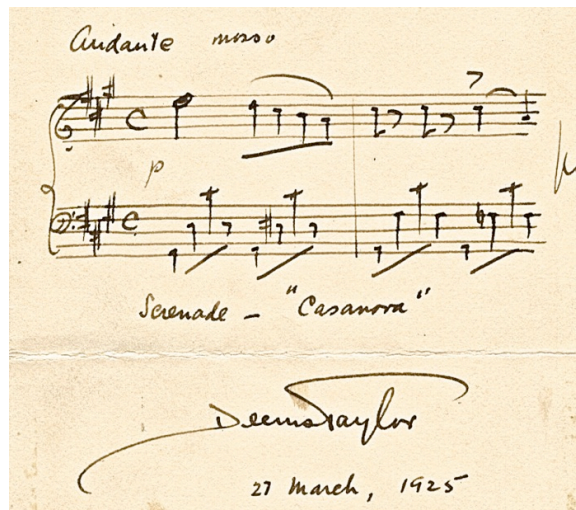 Andante mosso
p
Serenade - "Casanova"
Deems Taylor
27 March, 1925